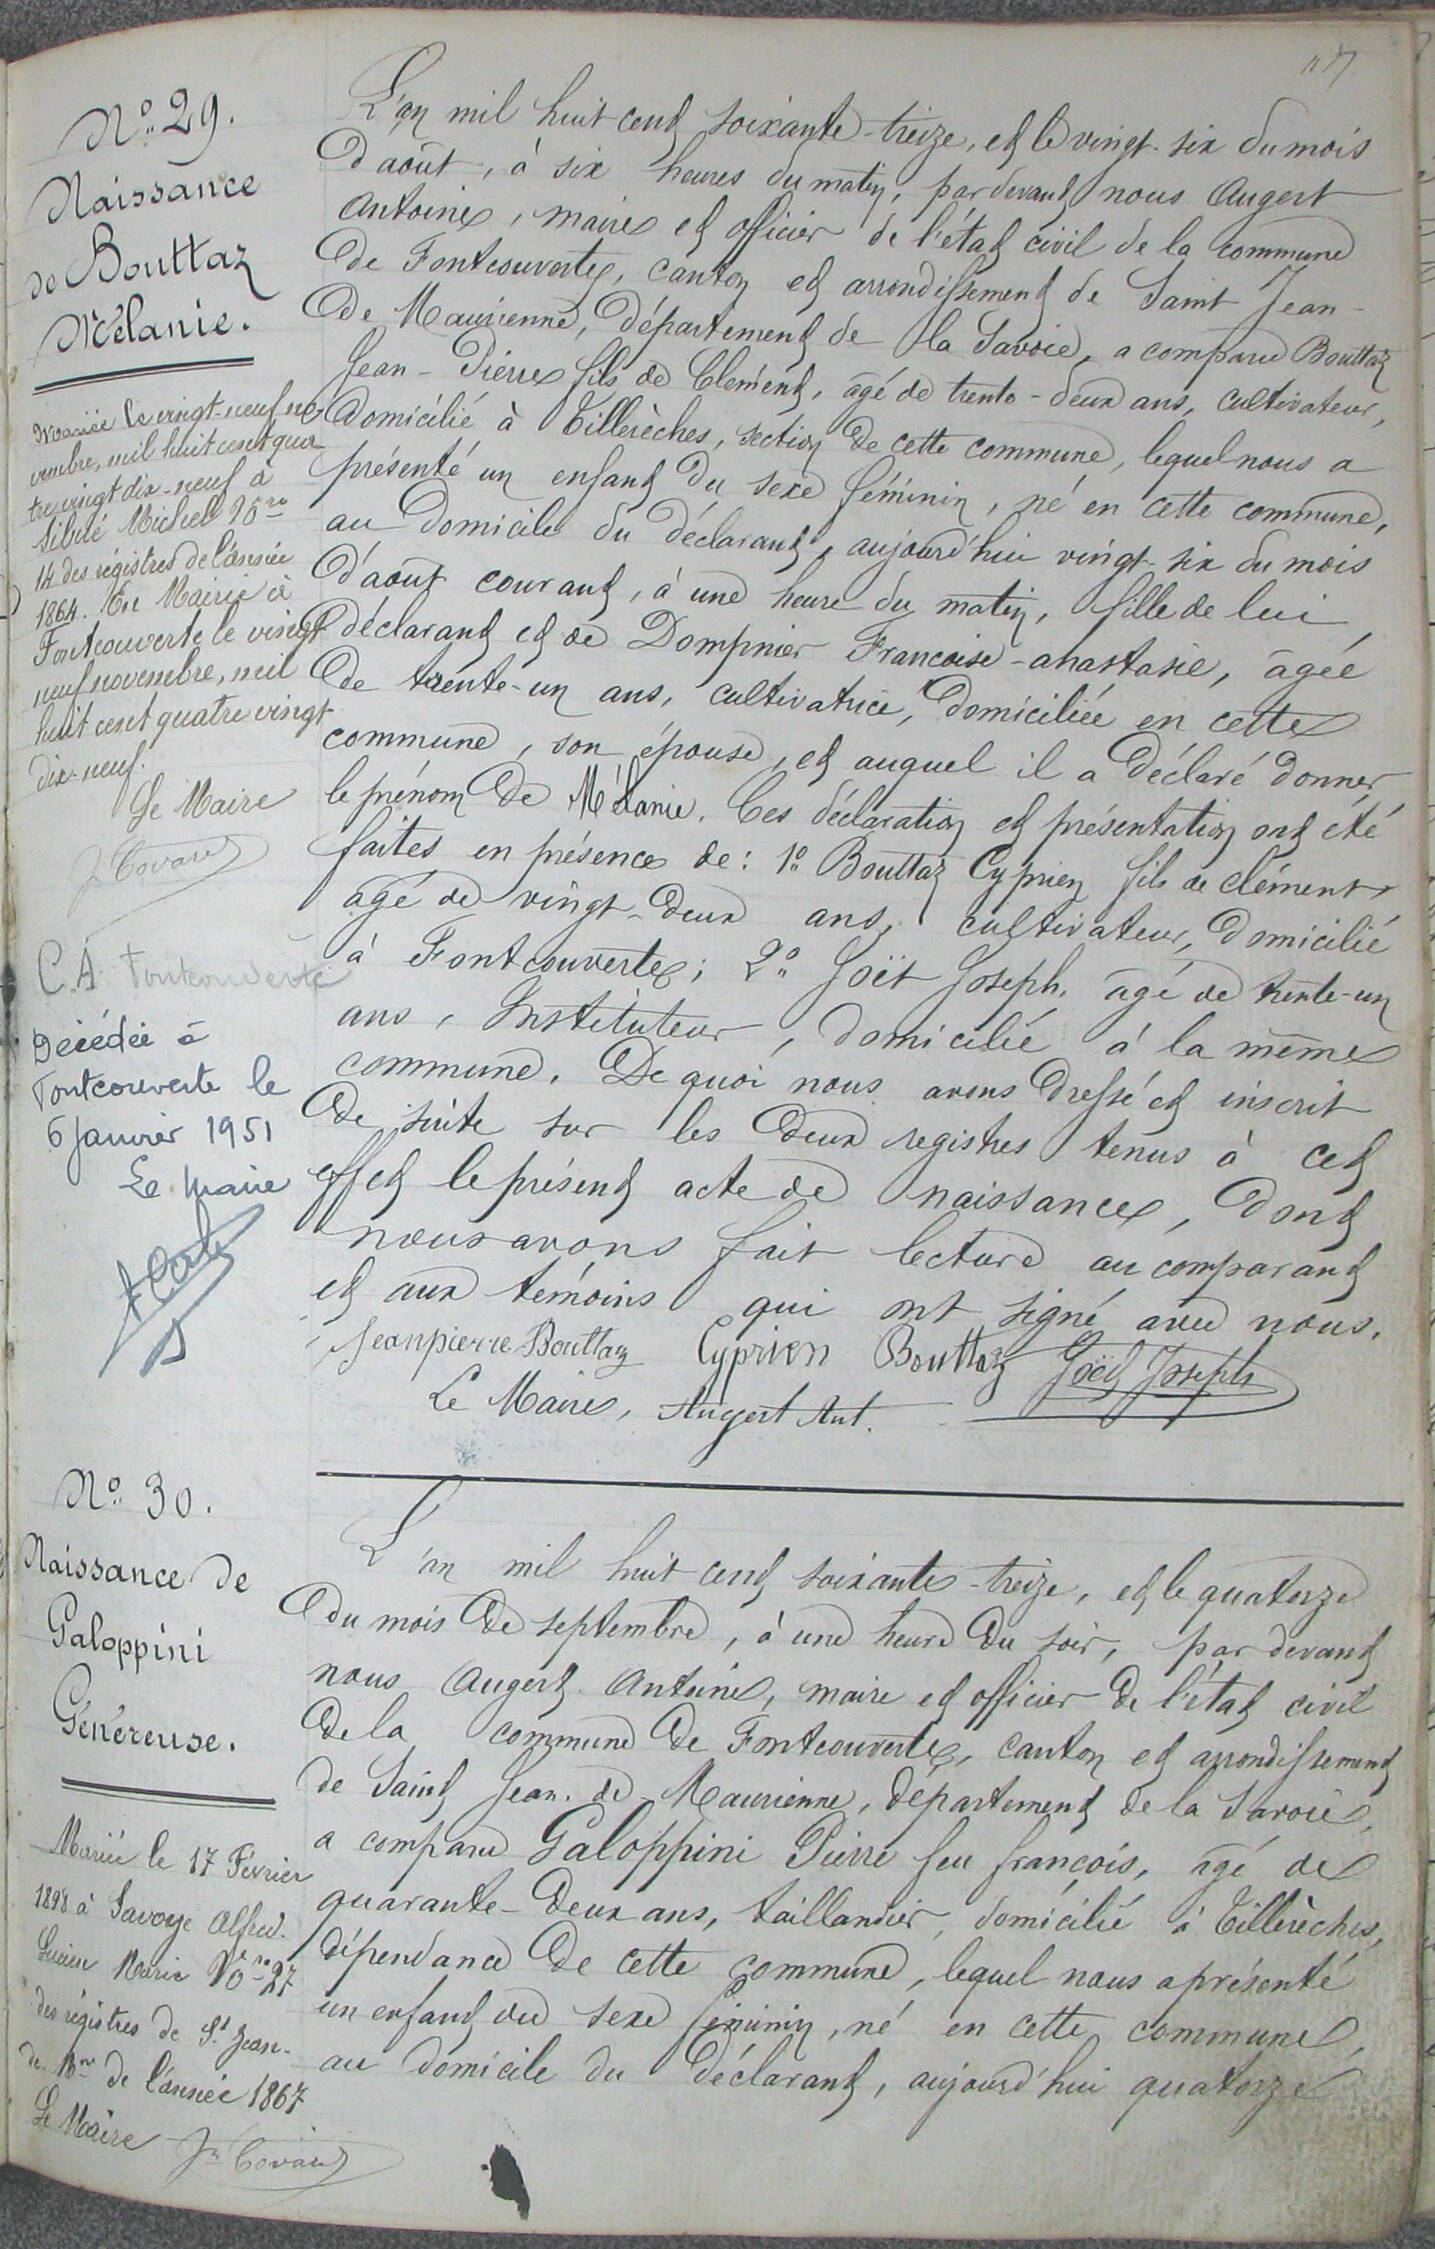 117
N° 29.
Naissance
de Bouttaz
Mélanie.
Mariée le vingt-neuf no
vembre, mil huit cent qua
tre vingt dix-neuf à
Sibué Michel No
14 des régistres de l'année
1864. En Mairie à
Fontcouverte le vingt
neuf novembre, mil
huit cent quatre vingt
dix-neuf.
Le Maire
C.A Fontcouverte
Décédée à
Fontcouverte le
6 Janvier 1951
Le Maire
L'an mil huit cent soixante-treize, et le vingt-six du mois
d'août, à six heures du matin, par devant nous Augert
Antoine, maire et officier de l'état civil de la commune
de Fontcouverte, canton et arrondissement de Saint Jean-
de Maurienne, département de la Savoie, a comparu Bouttaz
Jean-Pierre fils de Clément, âgé de trente-deux ans, cultivateur,
domicilié à Villerèches, section de cette commune, lequel nous a
présenté un enfant du sexe féminin, né en cette commune,
au domicile du déclarant, aujourd'hui vingt-six du mois
d'août courant, à une heure du matin, fille de lui
déclarant et de Dompnier Francoise-anastasie, âgée
de trente-un ans, cultivatrice, domiciliée en cette
commune, son épouse, et auquel il a déclaré donner
le prénom de Mélanie. Ces déclaration et présentation ont été
faites en présence de: 1° Bouttaz Cyprien fils de clément,
agé de vingt-deux ans, cultivateur, domicilié
à Fontcouverte; 2° Joët Joseph, âgé de trente-un
ans, Instituteur, domicilié à la même
commune. De quoi nous avons dressé et inscrit
de suite sur les deux registres tenus à cet
effet le présent acte de naissance, dont
nous avons fait lecture au comparant
et aux témoins qui ont signé avec nous.
Jeanpierre Bouttaz Cyprien Bouttaz Joët Joseph
Le Maire, Augert Ant.
N° 30.
Naissance de
Galoppini
Généreuse.
Mariée le 17 Février
1898 à Savoye Alfred-
Lucien Marie No 27
des régistres de St Jean-
de Mne de l'année 1867
Le Maire
L'an mil huit cent soixante-treize, et le quatorze
du mois de septembre, à une heure du soir, par devant
nous Augert Antoine, maire et officier de l'état civil
de la commune de Fontcouverte, canton et arrondissement
de Saint Jean-de-Maurienne, département de la Savoie,
a comparu Galoppini Pierre feu françois, âgé de
quarante-deux ans, taillandier, domicilié à Villerèches,
dépendance de cette commune, lequel nous a présenté
un enfant du sexe féminin, né en cette commune,
au domicile du déclarant, aujourd'hui quatorze